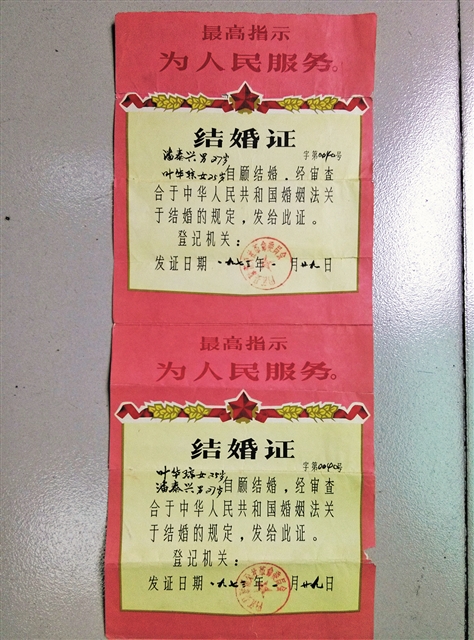 最高指示
为人民服务。
结婚证
字第0040号
潘泰兴 男 27岁
叶华琼 女 25岁 自愿结婚，经审查
合于中华人民共和国婚姻法关
于结婚的规定，发给此证。
登记机关：
发证日期 一九七三年 一月 廿九日
最高指示
为人民服务。
结婚证
字第0040号
叶华琼 女 25岁
潘泰兴 男 27岁 自愿结婚，经审查
合于中华人民共和国婚姻法关
于结婚的规定，发给此证。
登记机关：
发证日期 一九七三年 一月 廿九日